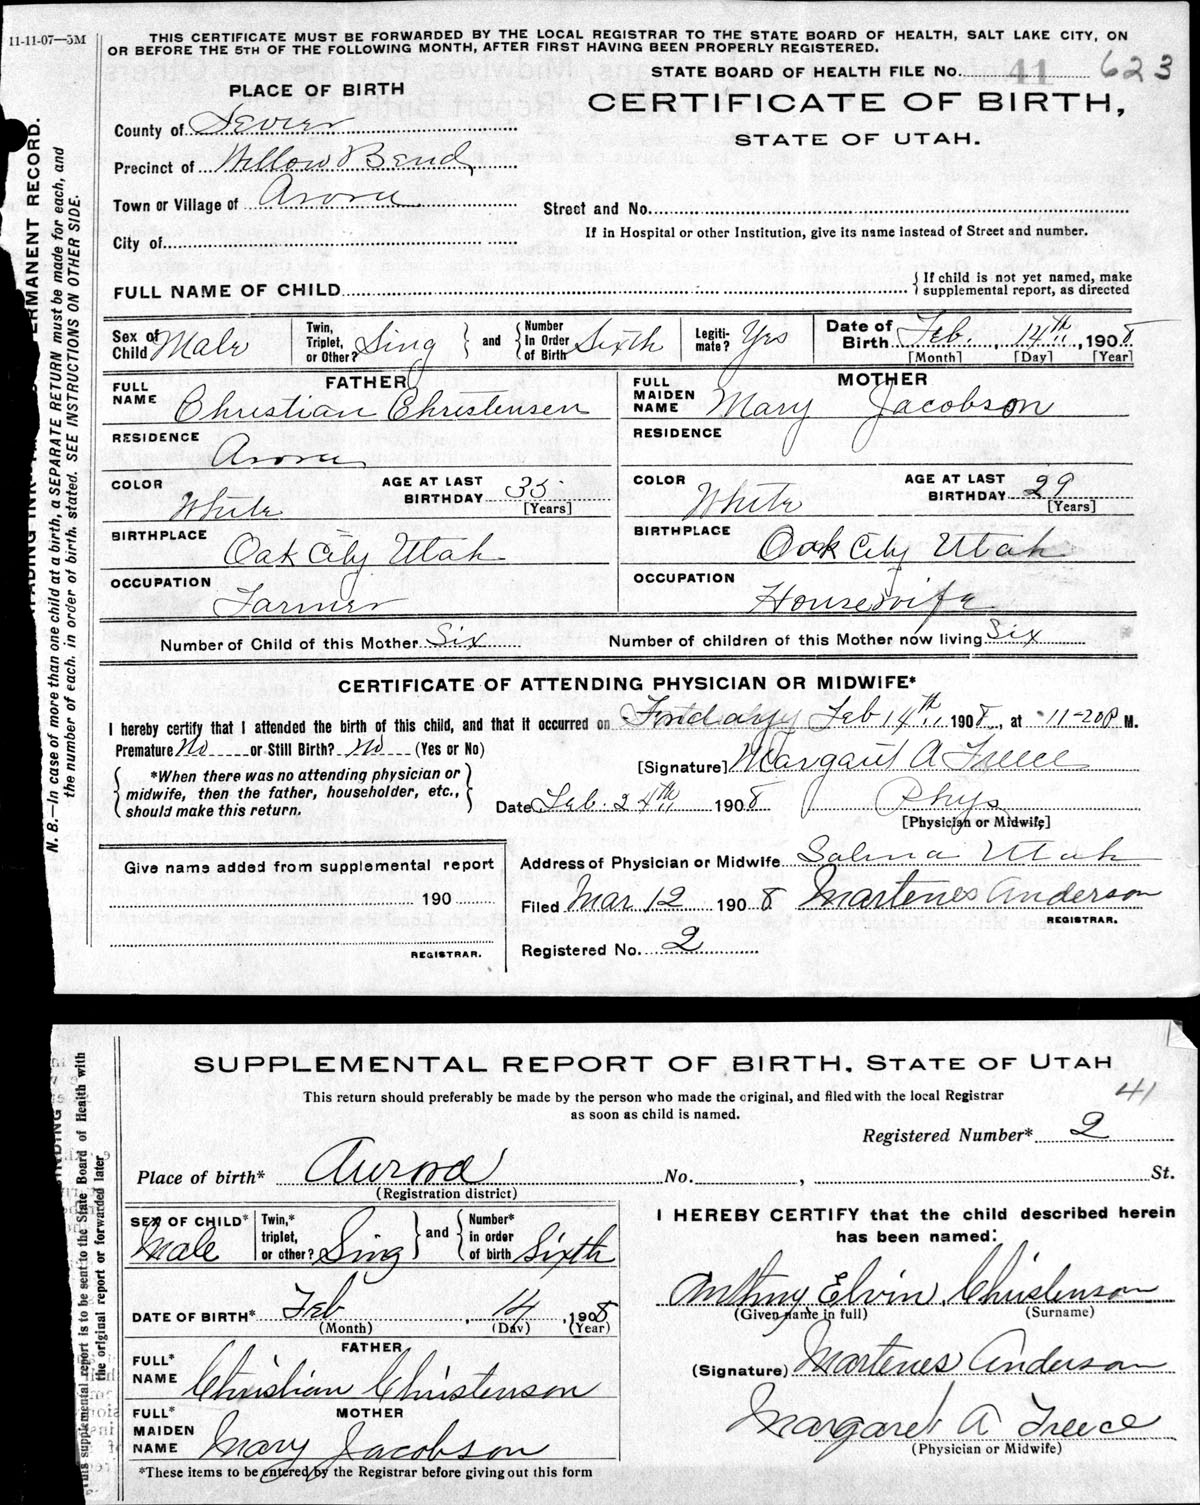 11-11-07—5M
THIS CERTIFICATE MUST BE FORWARDED BY THE LOCAL REGISTRAR TO THE STATE BOARD OF HEALTH, SALT LAKE CITY, ON
OR BEFORE THE 5TH OF THE FOLLOWING MONTH, AFTER FIRST HAVING BEEN PROPERLY REGISTERED.
STATE BOARD OF HEALTH FILE No. 41 623
PLACE OF BIRTH
CERTIFICATE OF BIRTH,
STATE OF UTAH.
County of Sevier
Precinct of Willow Bend
Town or Village of Arora
Street and No.
City of
If in Hospital or other Institution, give its name instead of Street and number.
FULL NAME OF CHILD
{ If child is not yet named, make
supplemental report, as directed
Sex of Child Male
Twin, Triplet, or Other? Sing } and { Number In Order of Birth Sixth
Legiti-mate? Yes
Date of Birth Feb. 14th, 1908
[Month] [Day] [Year]
FATHER
FULL NAME Christian Christensen
MOTHER
FULL MAIDEN NAME Mary Jacobson
RESIDENCE Arora
RESIDENCE
COLOR White
AGE AT LAST BIRTHDAY 35 [Years]
COLOR White
AGE AT LAST BIRTHDAY 29 [Years]
BIRTHPLACE Oak City Utah
BIRTHPLACE Oak City Utah
OCCUPATION Farmer
OCCUPATION Housewife
Number of Child of this Mother Six
Number of children of this Mother now living Six
CERTIFICATE OF ATTENDING PHYSICIAN OR MIDWIFE*
I hereby certify that I attended the birth of this child, and that it occurred on Feb 14th 1908, at 11-20 P M.
Premature No or Still Birth? No (Yes or No)
[Signature] Margaret A Freece
{ *When there was no attending physician or
midwife, then the father, householder, etc.,
should make this return. }
Date Feb. 24th 1908
Phys.
[Physician or Midwife]
Give name added from supplemental report
190
REGISTRAR.
Address of Physician or Midwife Salina Utah
Filed Mar 12 1908 Martenes Anderson
REGISTRAR.
Registered No. 2
ERMANENT RECORD.
N. B.—In case of more than one child at a birth, a SEPARATE RETURN must be made for each, and
the number of each, in order of birth, stated. SEE INSTRUCTIONS ON OTHER SIDE.
SUPPLEMENTAL REPORT OF BIRTH, STATE OF UTAH
This return should preferably be made by the person who made the original, and filed with the local Registrar
as soon as child is named.
41
Registered Number* 2
Place of birth* Aurora No. , St.
(Registration district)
SEX OF CHILD* Male
Twin,* triplet, or other? Sing } and { Number* in order of birth Sixth
I HEREBY CERTIFY that the child described herein
has been named:
Anthny Elvin Christenson
(Given name in full) (Surname)
DATE OF BIRTH* Feb 14, 1908
(Month) (Day) (Year)
FATHER
FULL* NAME Christian Christenson
(Signature) Martenes Anderson
MOTHER
FULL* MAIDEN NAME Mary Jacobson
Margaret A Freece
(Physician or Midwife)
*These items to be entered by the Registrar before giving out this form
supplemental report is to be sent to the State Board of Health with
the original report or forwarded later